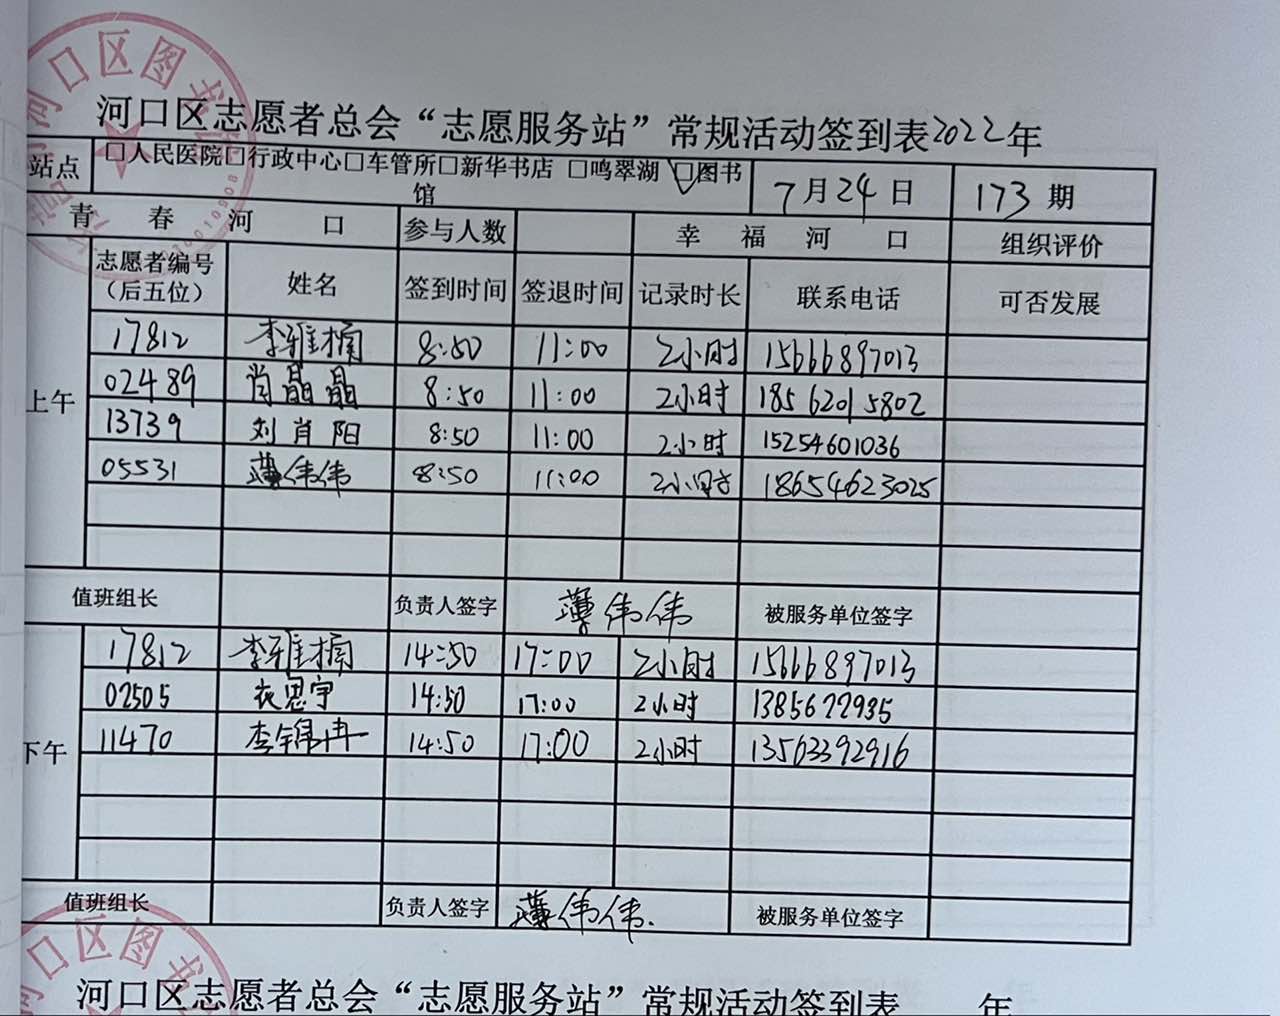 河口区志愿者总会“志愿服务站”常规活动签到表2022年
站点 □人民医院□行政中心□车管所□新华书店 □鸣翠湖 □图书馆 7月24日 173期
青春河口 参与人数 幸福河口 组织评价
志愿者编号（后五位） 姓名 签到时间 签退时间 记录时长 联系电话 可否发展
上午
17812 李雅楠 8:50 11:00 2小时 15666897013
02489 肖晶晶 8:50 11:00 2小时 18562015802
13739 刘肖阳 8:50 11:00 2小时 15254601036
05531 薄伟伟 8:50 11:00 2小时 18654623025
值班组长 负责人签字 薄伟伟 被服务单位签字
下午
17812 李雅楠 14:50 17:00 2小时 15666897013
02505 袁思宇 14:50 17:00 2小时 1385622935
11470 李锦冉 14:50 17:00 2小时 13563392916
值班组长 负责人签字 薄伟伟. 被服务单位签字
河口区图书
河口区志愿者总会“志愿服务站”常规活动签到表 年